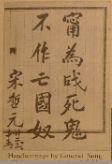 甯為戰死鬼
不作亡國奴
宋哲元
Handwritings by General Song